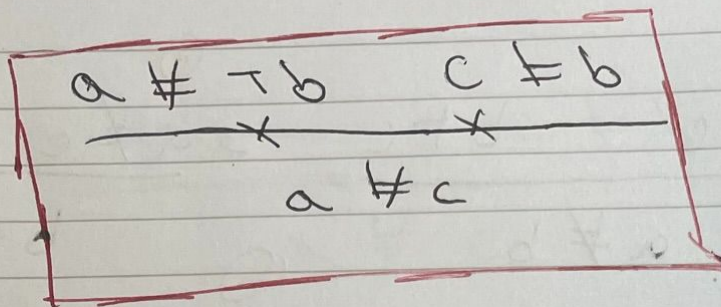 a ⊭ ¬ b    c ⊨ b
a ⊭ c